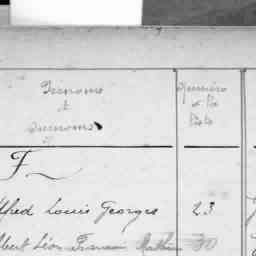 Prénoms
et
Surnoms
Numéro
de la
liste
F
lfred Louis Georges 23
lbert Léon Francis 30